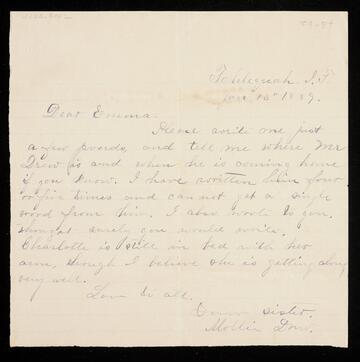 Tahlequah I.T.
Dear Emma:
Please write me just
a few words, and tell me where Mr
Drew is and when he is coming home
if you know. I have written him four
or five times and can not get a single
word from him. I also wrote to you,
thought surely you would write.
Charlotte is still in bed with her
arm, though I believe she is getting along
very well.
Love to all.
Your sister.
Mollie